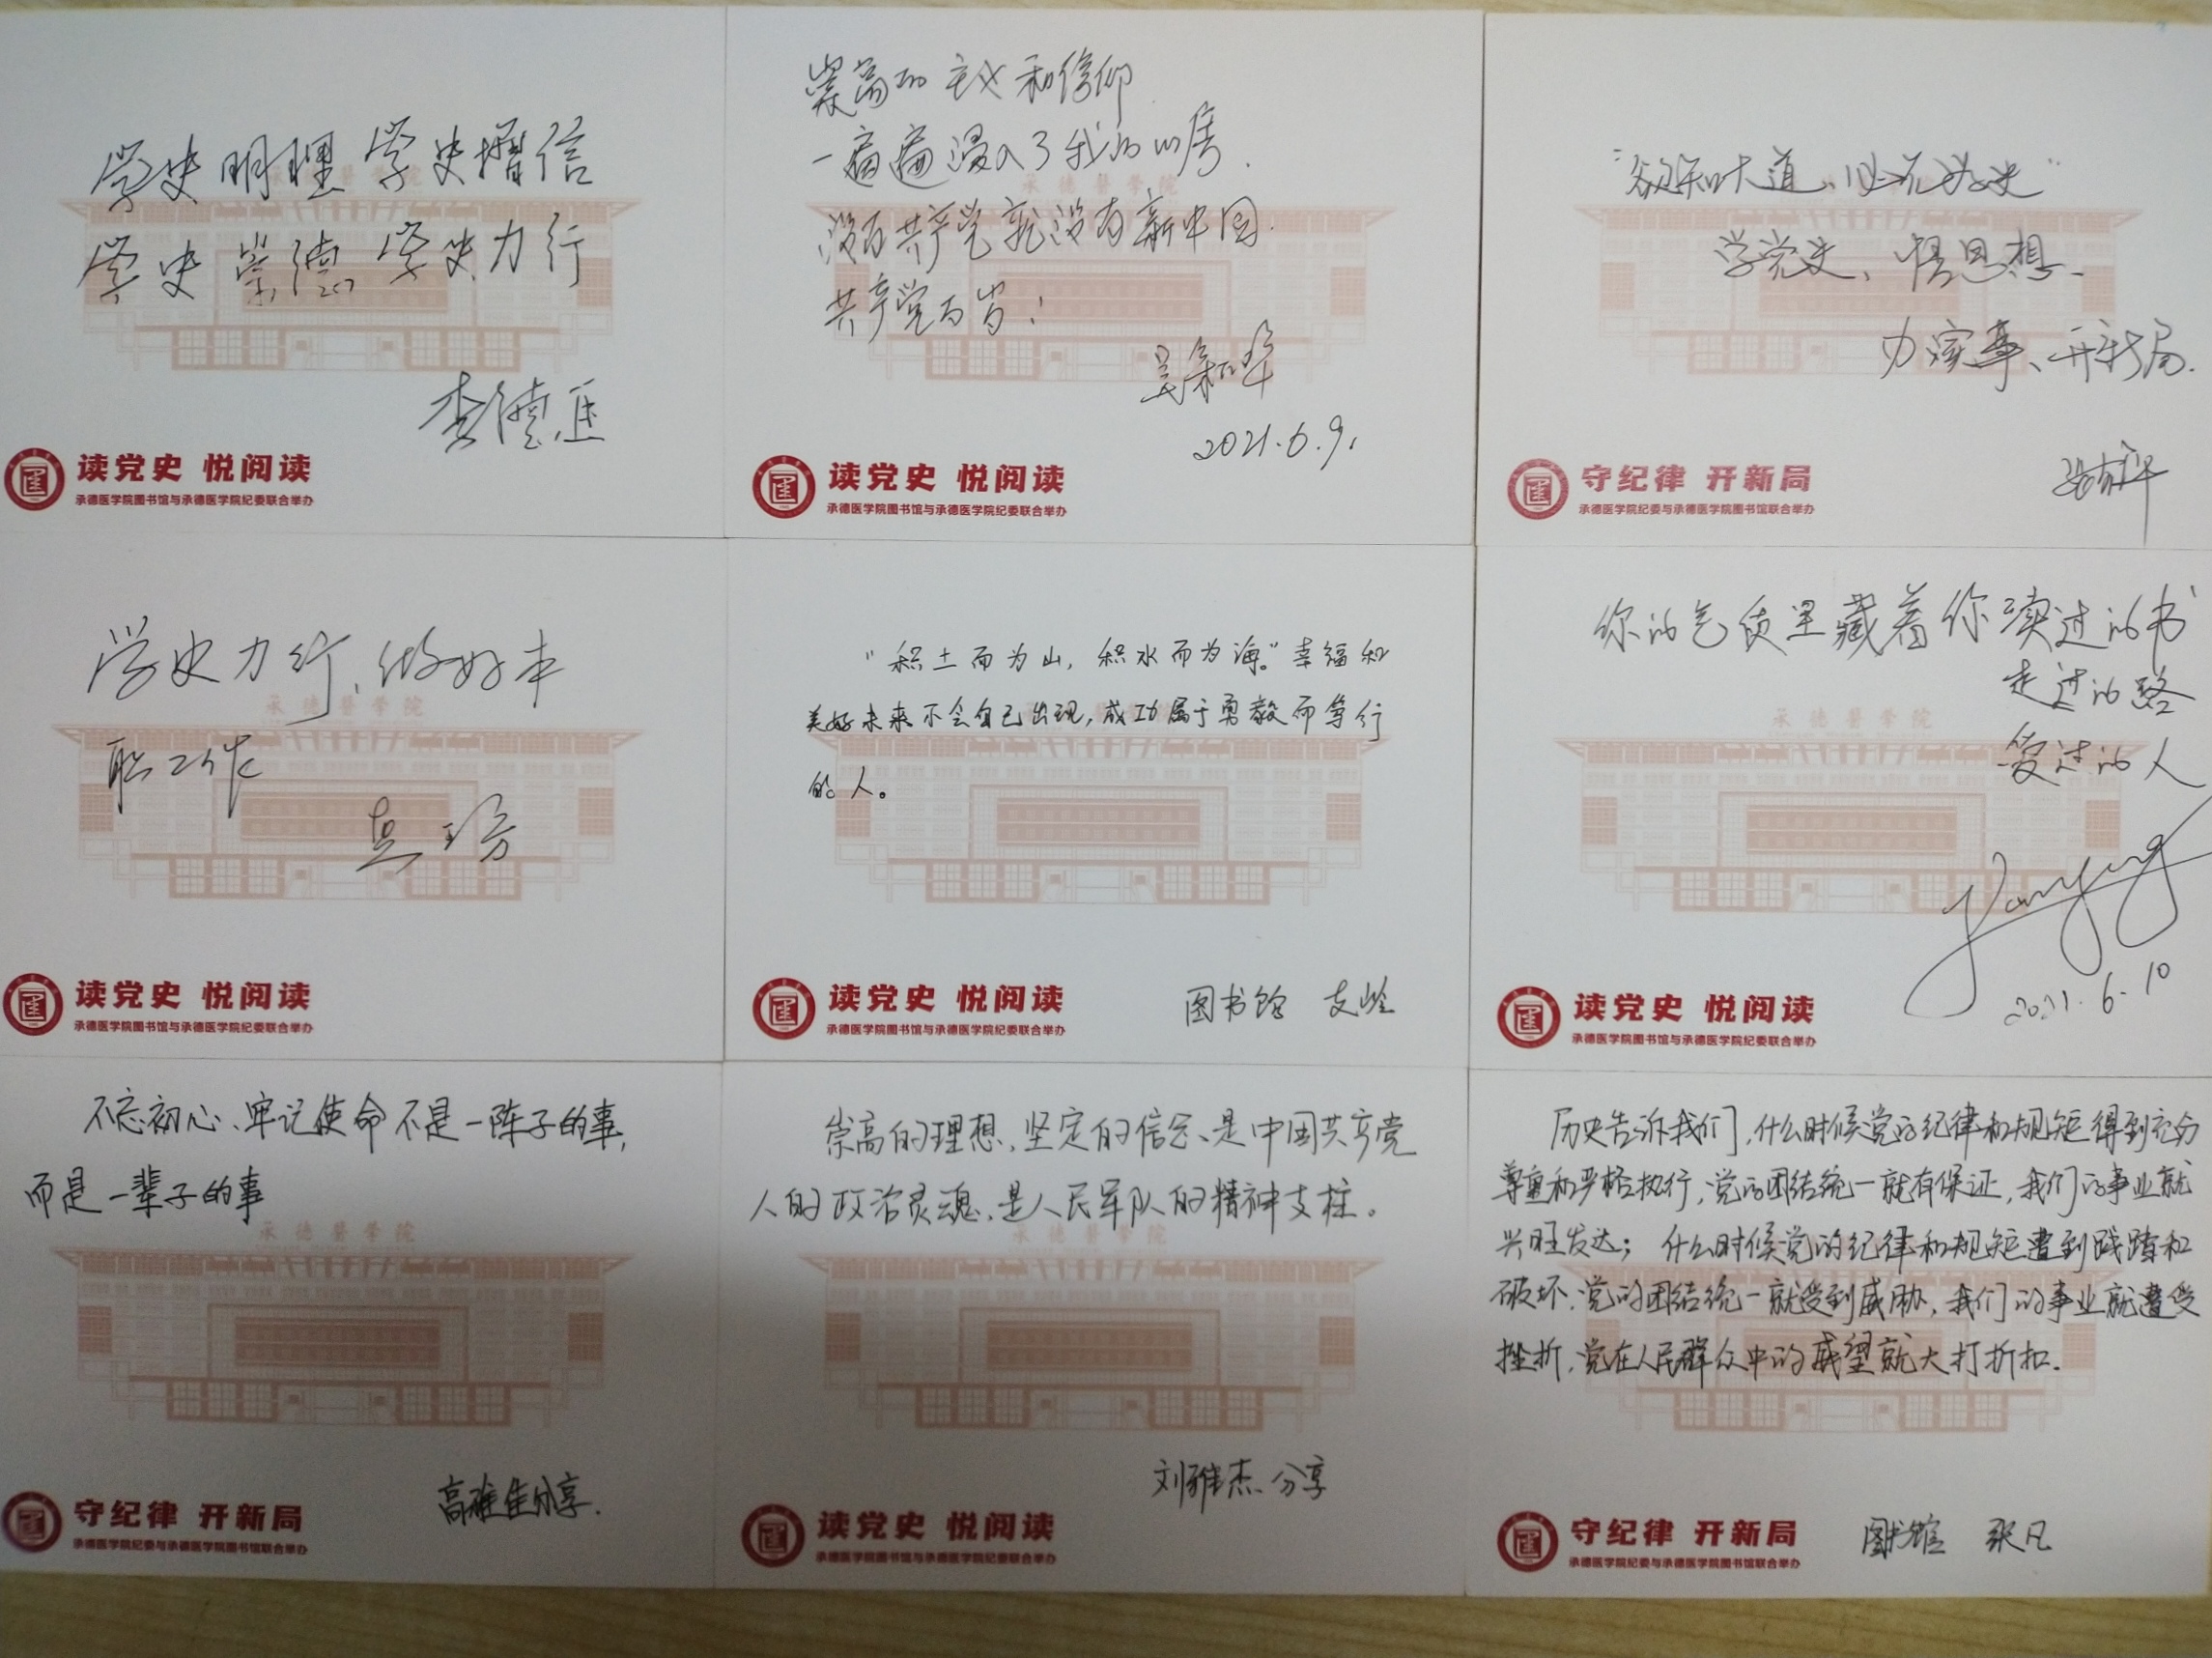 学史明理 学史增信
学史崇德 学史力行
承德醫学院
读党史 悦阅读
承德医学院图书馆与承德医学院纪委联合举办
崇高的主义和信仰
一遍遍浸入了我的心房.
没有共产党就没有新中国.
共产党百岁!
承德醫学院
2021.6.9.
读党史 悦阅读
承德医学院图书馆与承德医学院纪委联合举办
"欲知大道、必先为史"
学党史、悟思想.
办实事、开新局.
承德醫学院
守纪律 开新局
承德医学院纪委与承德医学院图书馆联合举办
学史力行,做好本
职工作
承德醫学院
读党史 悦阅读
承德医学院图书馆与承德医学院纪委联合举办
"积土而为山,积水而为海。"幸福和
美好未来不会自己出现,成功属于勇毅而笃行
的人。
图书馆 支岭
读党史 悦阅读
承德医学院图书馆与承德医学院纪委联合举办
你的气质里藏着你读过的书
走过的路
爱过的人
承德醫学院
2021.6.10
读党史 悦阅读
承德医学院图书馆与承德医学院纪委联合举办
不忘初心、牢记使命不是一阵子的事,
而是一辈子的事
承德醫学院
高雅佳分享.
守纪律 开新局
承德医学院纪委与承德医学院图书馆联合举办
崇高的理想,坚定的信念、是中国共产党
人的政治灵魂、是人民军队的精神支柱。
承德醫学院
刘雅杰分享
读党史 悦阅读
承德医学院图书馆与承德医学院纪委联合举办
历史告诉我们,什么时候党的纪律和规矩得到充分
尊重和严格执行,党的团结统一就有保证,我们的事业就
兴旺发达;什么时候党的纪律和规矩遭到践踏和
破坏,党的团结统一就受到威胁,我们的事业就遭受
挫折,党在人民群众中的威望就大打折扣.
图书馆 张凡
守纪律 开新局
承德医学院纪委与承德医学院图书馆联合举办